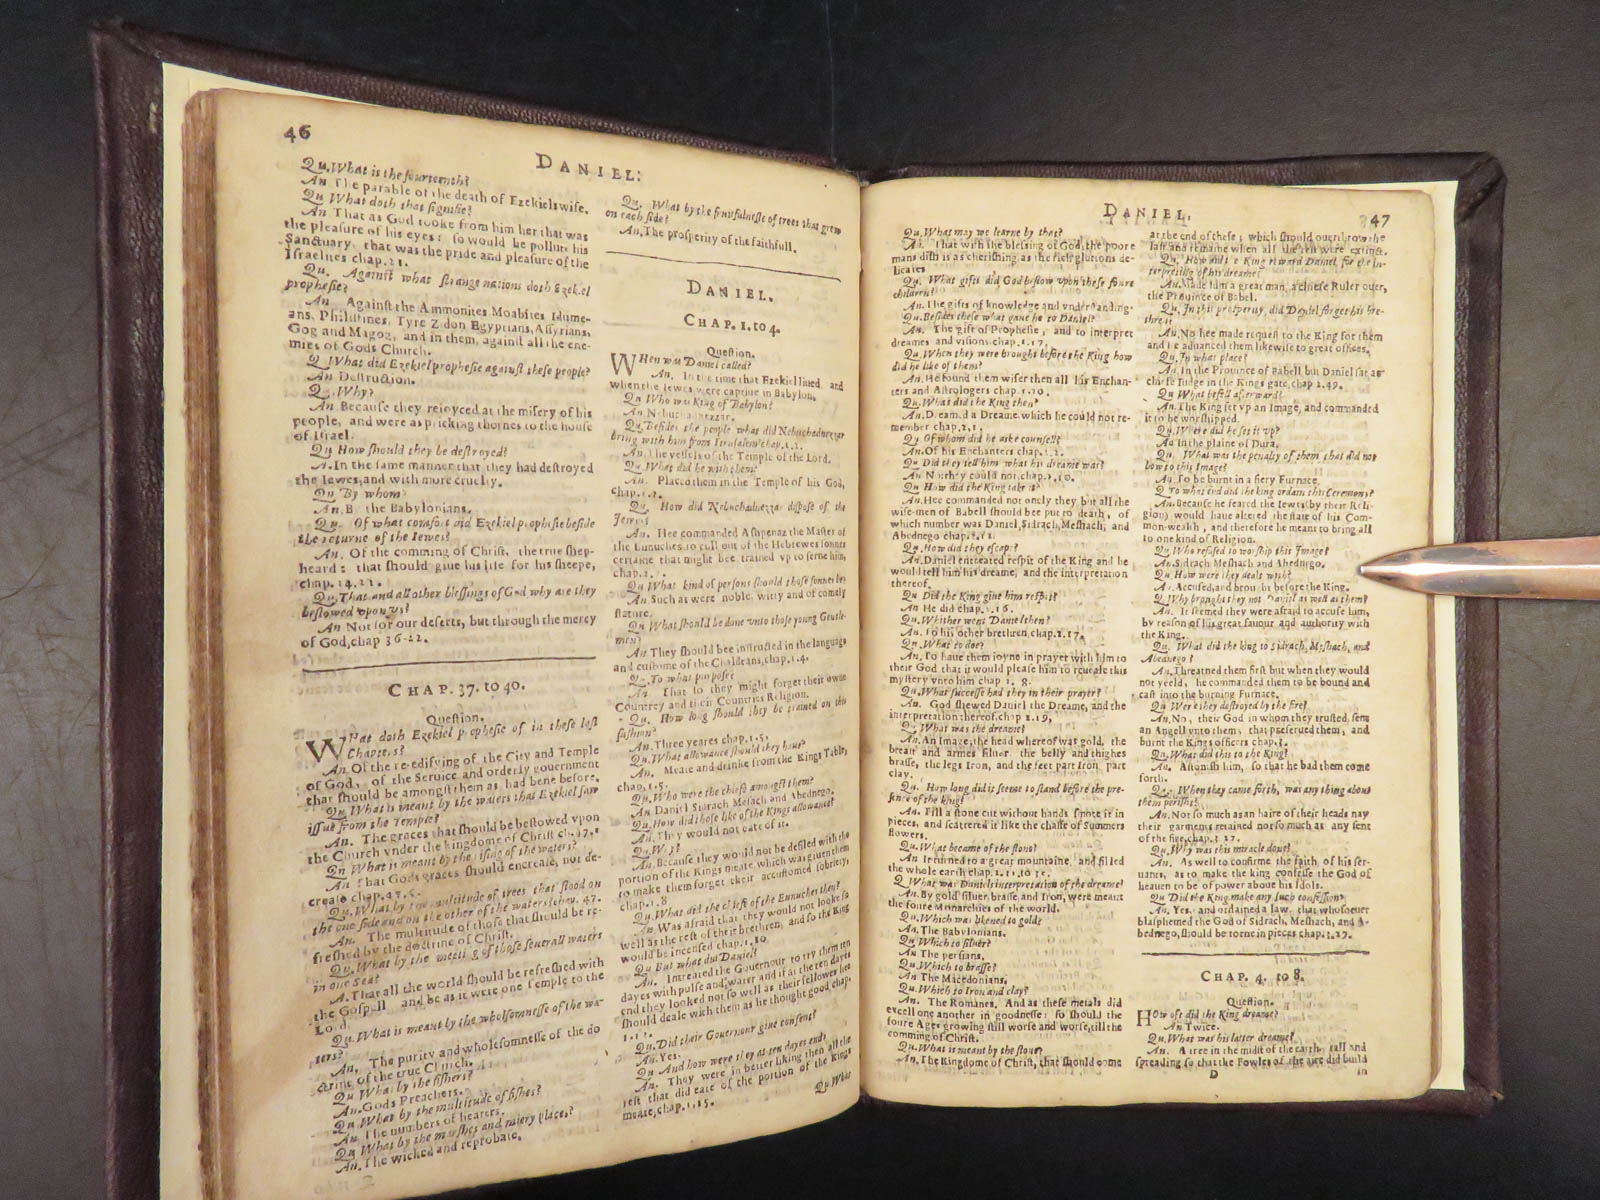 46
DANIEL:
Qu. What is the fourteenth?
An. The parable of the death of Ezekiels wife.
Qu What doth that signifie?
An. That as God tooke from him her that was
the pleasure of his eyes: so would he pollute his
Sanctuary, that was the pride and pleasure of the
Israelites chap. 21.
Qu. Against what strange nations doth Ezekiel
prophesie?
An. Against the Ammonites Moabites Idume-
ans, Philistines, Tyre Zidon Egyptians, Assyrians,
Gog and Magog, and in them, against all the ene-
mies of Gods Church.
Q What did Ezekiel prophesie against these people?
An Destruction.
Q. Why?
An Because they reioyced at the misery of his
people, and were as pricking thornes to the house
of Israel.
Qu How should they be destroyed?
A. In the same manner that they had destroyed
the Iewes, and with more cruelty.
Qu By whom
An. B the Babylonians.
Qu. Of what comfort did Ezekiel prophesie beside
the returne of the Iewes?
An. Of the comming of Christ, the true shep-
heard: that should giue his life for his sheepe,
chap. 34. 23.
Qu. That and all other blessings of God why are they
bestowed upon vs?
An Not for our deserts, but through the mercy
of God, chap 36-22.
CHAP. 37. to 40.
Question.
WHat doth Ezekiel prophesie of in these last
Chapters?
An. Of the re-edifying of the City and Temple
of God, of the Seruice and orderly gouernment
that should be amongst them as had bene before.
Qu. What is meant by the waters that Ezekiel saw
issue from the Temple?
An. The graces that should be bestowed vpon
the Church vnder the kingdome of Christ ch. 47. 1
Qu What is meant by the rising of the waters?
An That Gods graces should encrease, not de-
crease chap. 47. 5.
Qu. What by the multitude of trees that stood on
the one side and on the other of the waters? chap. 47.
An. The multitude of those that should be re-
freshed by the doctrine of Christ.
Qu. What by the meeting of those seuerall waters
in one Sea?
A. That all the world should be refreshed with
the Gospell and be as it were one Temple to the
Lord.
Qu. What is meant by the wholsomnesse of the wa-
ters?
An. The purity and wholesomnesse of the do
ctrine of the true Church.
Qu What by the fishers?
An. Gods Preachers.
Qu. What by the multitude of fishes?
An. The numbers of hearers.
Qu What by the marshes and miery places?
An. The wicked and reprobate.
Qu. What by the fruitfulnesse of trees that grew
on each side?
An. The prosperity of the faithfull.
DANIEL.
CHAP. I. to 4.
Question.
WHen was Daniel called?
An. In the time that Ezekiel liued, and
when the Iewes were captiue in Babylon.
Qu Who was King of Babylon?
An. Nebuchadnezzar.
Qu. Besides the people what did Nebuchadnezzar
bring with him from Ierusalem? chap. 1. 2.
An. The vessels of the Temple of the Lord.
Qu. What did he with them?
An. Placed them in the Temple of his God,
chap. 1. 2.
Qu. How did Nebuchadnezzar dispose of the
Jewes
An. Hee commanded Ashpenaz the Master of
the Eunuches to cull out of the Hebrewes sonnes
certaine that might bee trained vp to serue him,
chap. 1.
Qu What kind of persons should those sonnes be?
An Such as were noble, witty and of comely
stature.
Qu What should be done vnto those young Gentle-
men?
An They should bee instructed in the language
and custome of the Chaldeans, chap. 1. 4.
Qu. To what purpose?
An That so they might forget their owne
Countrey and their Countries Religion.
Qu. How long should they be trained on this
fashion?
An. Three yeares chap. 1. 5.
Qu. What allowance should they haue?
An. Meate and drinke from the Kings Table,
chap. 1. 5.
Qu. Who were the chiefe amongst them?
An Daniel Sidrach Mesach and Abednego.
Qu. How did those like of the Kings allowance?
An. They would not eate of it.
Qu. Why?
An. Because they would not be defiled with the
portion of the Kings meate, which was giuen them
to make them forget their accustomed sobriety,
chap. 1. 8
Qu. What did the chiefe of the Eunuches then?
An Was afraid that they would not looke so
well as the rest of their brethren, and so the King
would be incensed chap. 1. 10
Qu But what did Daniel?
An. Intreated the Gouernour to try them ten
dayes with pulse and water and if at the ten dayes
end they looked not so well as their fellowes hee
should deale with them as he thought good chap.
Qu. Did their Gouernour giue consent?
An. Yes.
Qu And how were they at ten dayes end?
An. They were in better liking then all the
rest that did eate of the portion of the Kings
meate, chap. 1. 15.
Qu. What
DANIEL.
47
Qu. What may we learne by that?
An. That with the blessing of God, the poore
mans dish is as cherishing as the rich gluttons de-
licates
Qu. What gifts did God bestow vpon these foure
children?
An. The gifts of knowledge and vnderstanding.
Qu. Besides these what gaue he to Daniel?
An. The gift of Prophesie, and to interpret
dreames and visions, chap. 1. 17.
Qu. When they were brought before the King how
did he like of them?
An. He found them wiser then all his Enchan-
ters and Astrologers chap. 1. 20.
Qu. What did the King then?
An. Dreamed a Dreame which he could not re-
member chap. 2. 1.
Qu Of whom did he aske counsell?
An. Of his Enchanters chap. 2. 2.
Qu Did they tell him what his dreame was?
An No they could not, chap. 2. 10.
Qu How did the King take it?
An. Hee commanded not onely they but all the
wise-men of Babell should bee put to death, of
which number was Daniel, Sidrach, Meshach, and
Abednego chap. 2. 13
Qu. How did they escap?
An. Daniel entreated respit of the King and he
would tell him his dreame, and the interpretation
thereof.
Qu Did the King giue him respit?
An He did chap. 2. 16.
Qu. Whither went Daniel then?
An. To his other brethren, chap. 2. 17.
Qu. What to doe?
An. To haue them ioyne in prayer with him to
their God that it would please him to reueale this
mystery vnto him chap 2. 18.
Qu. What successe had they in their prayer?
An. God shewed Daniel the Dreame, and the
interpretation thereof, chap 2. 19,
Qu. What was the dreame?
An. An Image, the head whereof was gold, the
breast and armes siluer, the belly and thighes
brasse, the legs Iron, and the feet part Iron, part
clay.
Qu. How long did it seeme to stand before the pre-
sence of the king?
An. Till a stone cut without hands smote it in
pieces, and scattered it like the chaffe of Summers
flowers.
Qu. What became of the stone?
An It turned to a great mountaine, and filled
the whole earth chap.
Q What was Daniels interpretation of the dreame?
An. By gold siluer, brasse, and Iron, were meant
the foure Monarchies of the world.
Qu. Which was likened to gold?
An. The Babylonians.
Qu. Which to siluer?
An The persians.
Qu. Which to brasse?
An The Macedonians.
Qu. Which to Iron and clay?
An. The Romanes. And as these metals did
excell one another in goodnesse: so should the
foure Ages growing still worse and worse, till the
comming of Christ.
Qu. What is meant by the stone?
An. The Kingdome of Christ, that should come
at the end of these; which should ouerthrow the
last and remaine when all the rest were extinct.
Qu. How did the King reward Daniel, for the in-
terpreting of his dreame?
An. Made him a great man, a chiefe Ruler ouer,
the Prouince of Babel.
Qu. In this prosperity, did Daniel forget his bre-
thren?
An. No hee made request to the King for them
and he aduanced them likewise to great offices.
Qu. In what place?
An. In the Prouince of Babell but Daniel sat as
chiefe Iudge in the Kings gate, chap 2. 49.
Qu What befell afterward?
An. The King set vp an Image, and commanded
it to be worshipped.
Qu. Where did he set it vp?
An In the plaine of Dura.
Qu. What was the penalty of them that did not
bow to this Image?
An. To be burnt in a fiery Furnace.
Q To what end did the king ordain this Ceremony?
An. Because he feared the Iewes (by their Reli-
gion) would haue altered the state of his Com-
mon-wealth, and therefore he meant to bring all
to one kind of Religion.
Qu. Who refused to worship this Image?
An. Sidrach Meshach and Abednego.
Qu. How were they dealt with?
An. Accused, and brought before the King.
Qu. Why brought they not Daniel as well as them?
An. It seemed they were afraid to accuse him,
by reason of his great fauour and authority with
the King.
Qu. What did the king to Sidrach, Meshach, and
Abednego?
An. Threatned them first but when they would
not yeeld, he commanded them to be bound and
cast into the burning Furnace.
Qu Were they destroyed by the fire?
An. No, their God in whom they trusted, sent
an Angell vnto them, that preserued them, and
burnt the Kings officers chap. 3.
Qu. What did this to the King?
An. Astonish him, so that he bad them come
forth.
Qu. When they came forth, was any thing about
them perisht?
An. Not so much as an haire of their heads nay
their garments retained not so much as any sent
of the fire, chap. 3 27.
Qu. Why was this miracle done?
An. As well to confirme the faith of his ser-
uants, as to make the king confesse the God of
heauen to be of power aboue his Idols.
Qu Did the King make any such confession?
An. Yes, and ordained a law, that whosoeuer
blasphemed the God of Sidrach, Meshach, and A-
bednego, should be torne in pieces chap. 3. 29.
CHAP. 4. to 8.
Question.
HOw oft did the King dreame?
An Twice.
Qu. What was his latter dreame?
An. A tree in the midst of the earth, tall and
spreading so that the Fowles of the aire did build
D
in